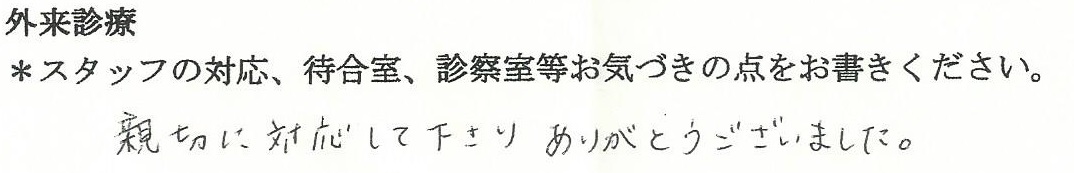 外来診療
＊スタッフの対応、待合室、診察室等お気づきの点をお書きください。
親切に対応して下さり ありがとうございました。